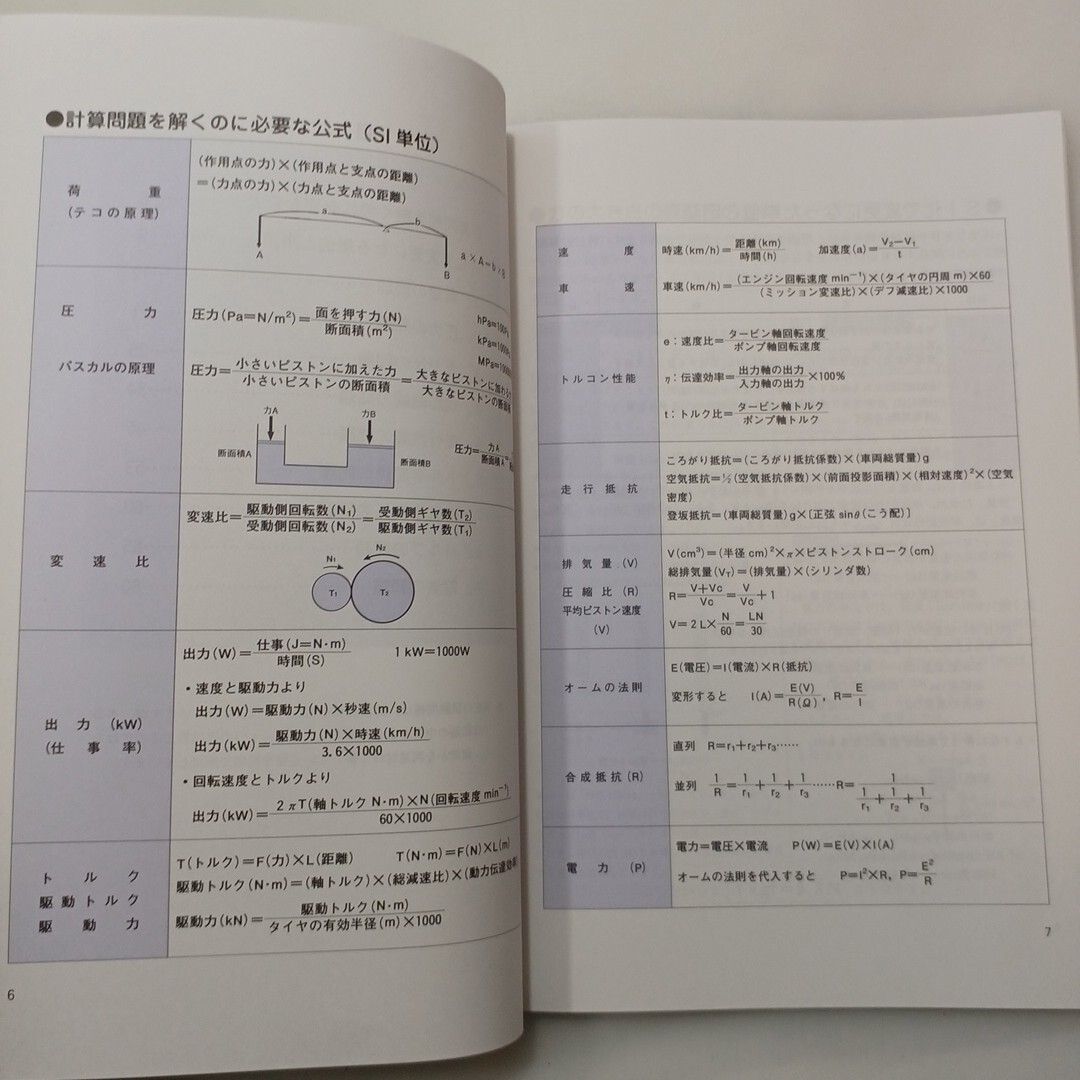 ●計算問題を解くのに必要な公式（SI単位）
荷重
(テコの原理)
(作用点の力)×(作用点と支点の距離)
＝(力点の力)×(力点と支点の距離)
a
b
A
B
a×A=b×B
圧力
パスカルの原理
圧力(Pa=N/m²)=面を押す力(N)/断面積(m²)
hPa=100Pa
kPa=1000Pa
圧力=小さいピストンに加えた力/小さいピストンの断面積=大きなピストンに加わる/大きなピストンの断面
力A
力B
断面積A
断面積B
圧力=力A/断面積A
変速比
変速比=駆動側回転数(N₁)/受動側回転数(N₂)=受動側ギヤ数(T₂)/駆動側ギヤ数(T₁)
N₁
N₂
T₁
T₂
出力(kW)
(仕事率)
出力(W)=仕事(J=N·m)/時間(S)
1kW=1000W
・速度と駆動力より
出力(W)=駆動力(N)×秒速(m/s)
出力(kW)=駆動力(N)×時速(km/h)/3.6×1000
・回転速度とトルクより
出力(kW)=2πT(軸トルクN·m)×N(回転速度min⁻¹)/60×1000
トルク
駆動トルク
駆動力
T(トルク)=F(力)×L(距離)
T(N·m)=F(N)×L(m)
駆動トルク(N·m)=(軸トルク)×(総減速比)×(動力伝達効率)
駆動力(kN)=駆動トルク(N·m)/タイヤの有効半径(m)×1000
6
速度
時速(km/h)=距離(km)/時間(h)
加速度(a)=V₂−V₁/t
車速
車速(km/h)=(エンジン回転速度min⁻¹)×(タイヤの円周m)×60/(ミッション変速比)×(デフ減速比)×1000
トルコン性能
e：速度比=タービン軸回転速度/ポンプ軸回転速度
η：伝達効率=出力軸の出力/入力軸の出力×100%
t：トルク比=タービン軸トルク/ポンプ軸トルク
走行抵抗
ころがり抵抗=(ころがり抵抗係数)×(車両総質量)g
空気抵抗=½(空気抵抗係数)×(前面投影面積)×(相対速度)²×(空気
密度)
登坂抵抗=(車両総質量)g×[正弦sinθ(こう配)]
排気量(V)
圧縮比(R)
平均ピストン速度
(V)
V(cm³)=(半径cm)²×π×ピストンストローク(cm)
総排気量(V_T)=(排気量)×(シリンダ数)
R=V+Vc/Vc=V/Vc+1
V=2L×N/60=LN/30
オームの法則
E(電圧)=I(電流)×R(抵抗)
変形すると I(A)=E(V)/R(Ω), R=E/I
合成抵抗(R)
直列 R=r₁+r₂+r₃……
並列 1/R=1/r₁+1/r₂+1/r₃……R=1/1/r₁+1/r₂+1/r₃
電力(P)
電力=電圧×電流 P(W)=E(V)×I(A)
オームの法則を代入すると P=I²×R, P=E²/R
7